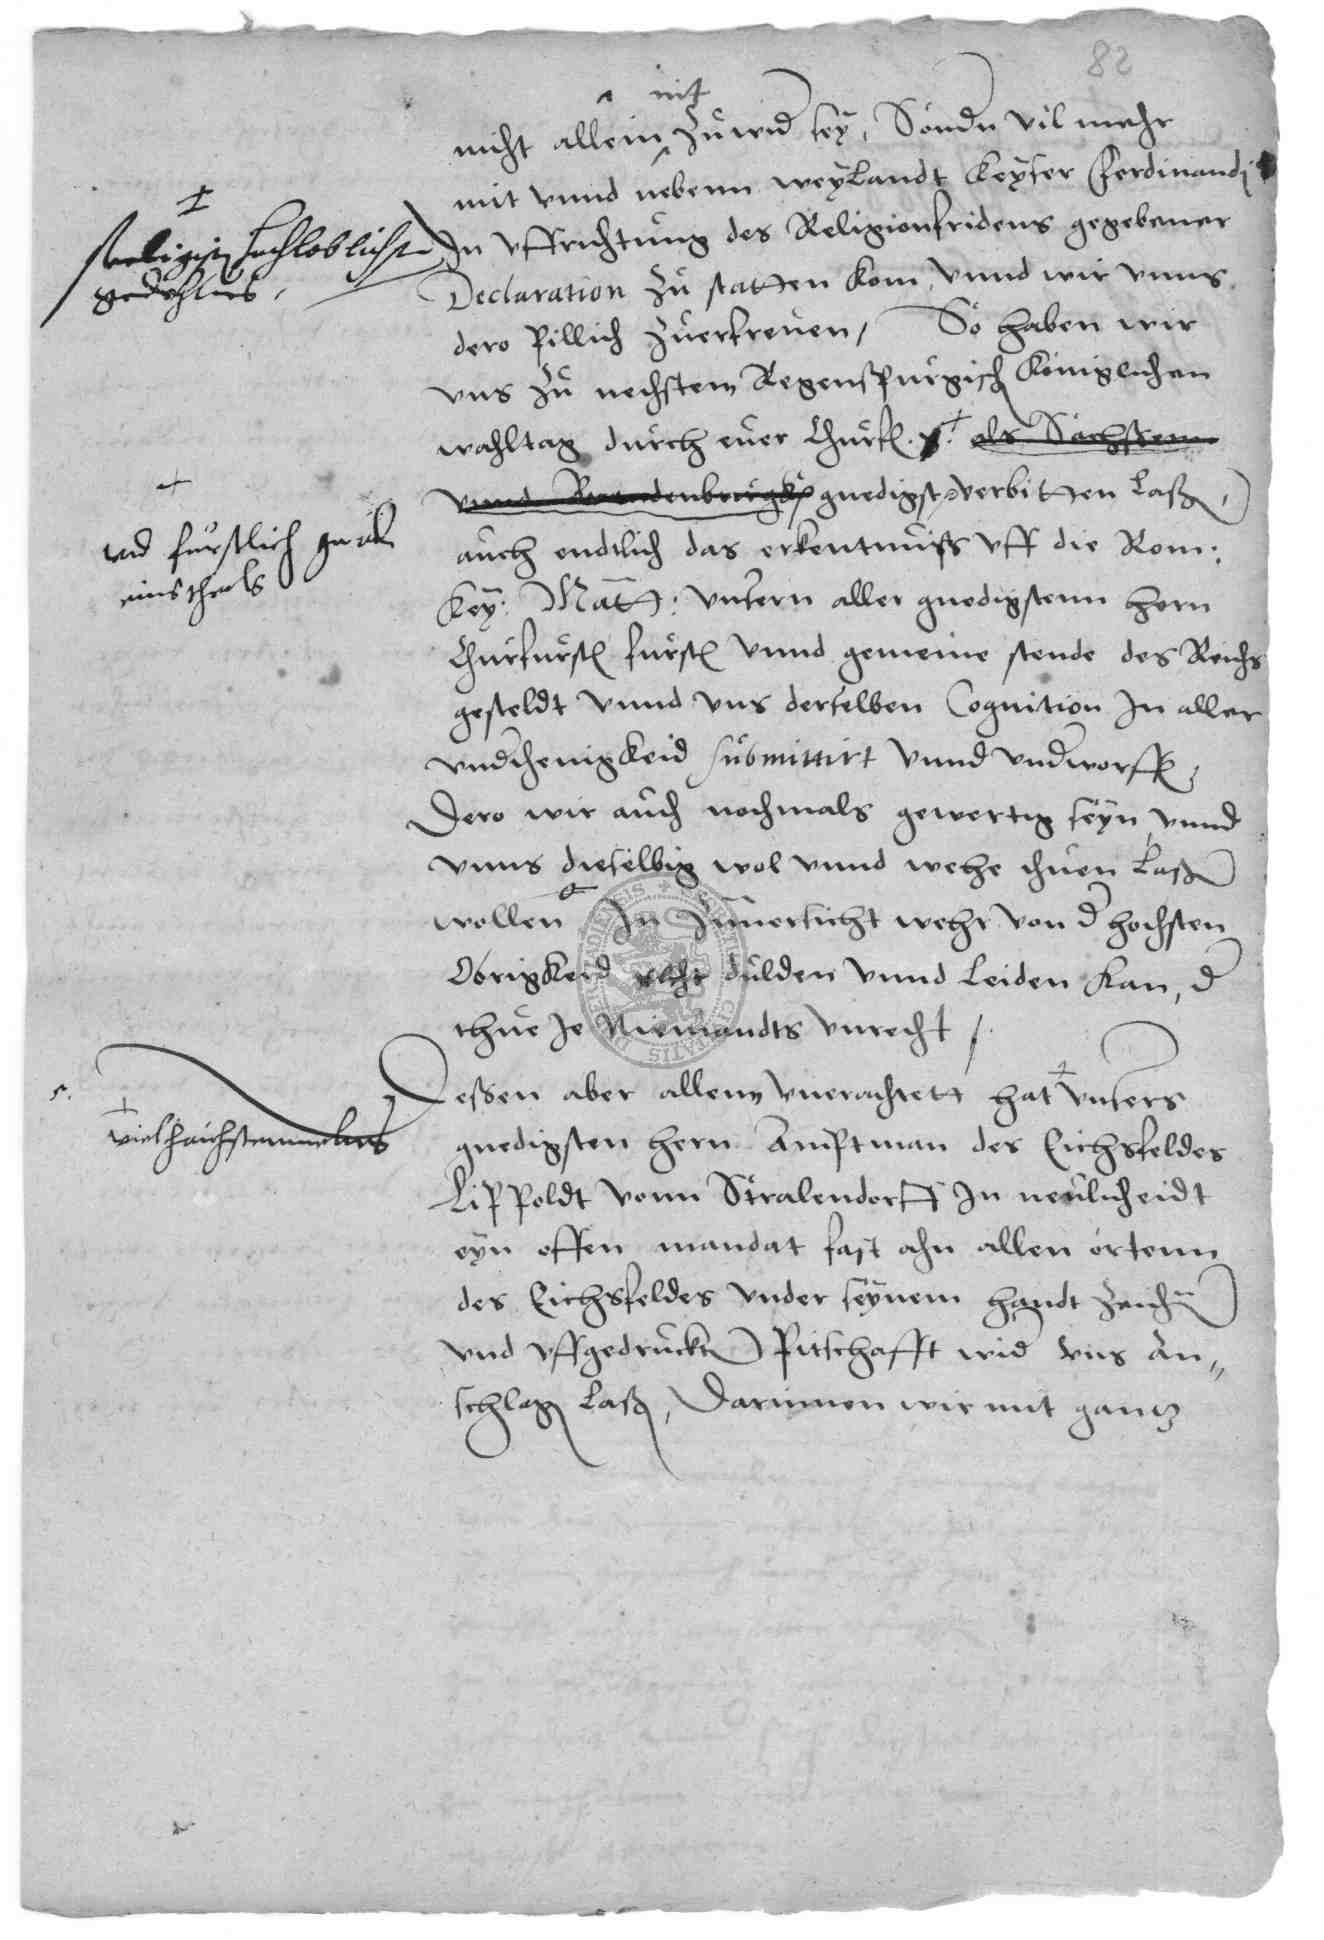 82
nit
nicht allein zuwid sey, Sondn vil mehr
mit vnnd nebenn weylandt Keyser Ferdinandi
seeligister hochloblicher
gedechtnus,
In vffrichtung des Religionfridens gegebener
Declaration zu statten kom, vnnd wir vnns
dero pillich zuerfreuen, So haben wir
vns zu nechstem Regenspurgisch Königlichen
wahltag durch euer Churf. g. als Sachssenn
vnnd Brandenburgk gnedigst verbitten laßen,
vnd fürstlich gnad
eins theils
auch endtlich das erkentnuß vff die Rom:
Key: Matt: vnsern aller gnedigstenn hern
Churfursten fursten vnnd gemeine stende des Reichs
gesteldt vnnd vns derselben Cognition In aller
vndthenigkeid submittirt vnnd vndworffen,
Dero wir auch nochmals gewertig seyn, vnnd
vnns dieselbig wol vnnd wehe thuen laßen
wollen In Zuuersicht wehr von d hochsten
Obrigkeid recht dulden vnnd leiden kan, d
thue Je Niemandts vnrecht,
Deßen aber allem vnerachtett hat vnsers
viel
gnedigsten hern Amptman des Eichsfeldes
Lippoldt vonn Stralendorff In neulicheidt
eyn offen mandat fast ahn allen örtenn
des Eichsfeldes vnder seynem handt zeichen
vnd vffgedruckten Pitschafft wid vns an„
schlagen laßen, Darinnen wir mit gantz